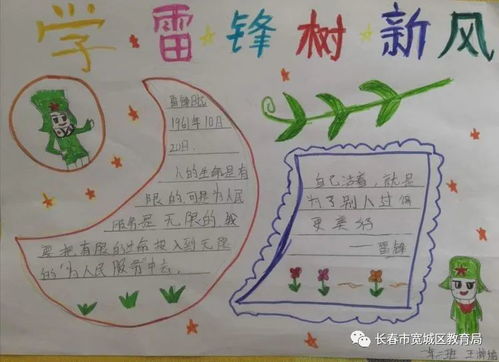 学雷锋树新风
雷锋日记
1961年10月
20日.
人的生命是有
限的,可是为人民
服务是无限的,我
要把有限的生命投入到无限
的“为人民服务”中去.
自己活着,就是
为了别人过得
更美好
——雷锋
长春市宽城区教育局
一年二班 王